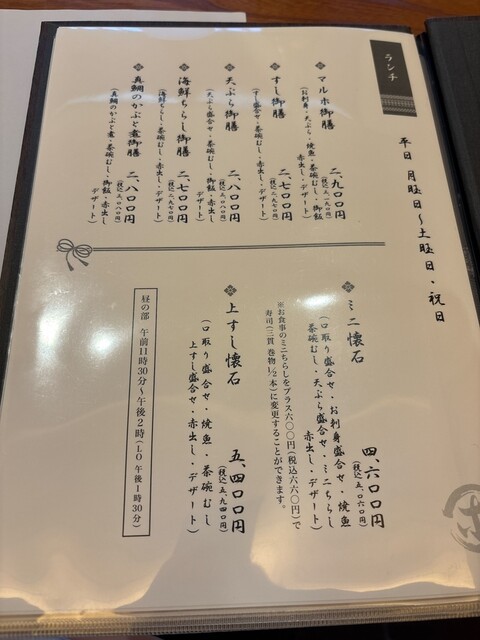 ランチ
平日 月曜日〜土曜日・祝日
マルホ御膳 二、九〇〇円
(税込三、一九〇円)
(お刺身・天ぷら・焼魚・茶碗むし・御飯
赤出し・デザート)
すし御膳 二、七〇〇円
(税込二、九七〇円)
(すし盛合せ・茶碗むし・赤出し・デザート)
天ぷら御膳 二、八〇〇円
(税込三、〇八〇円)
(天ぷら盛合せ・茶碗むし・赤出し・御飯
デザート)
海鮮ちらし御膳 二、七〇〇円
(税込二、九七〇円)
(海鮮ちらし・茶碗むし・赤出し・デザート)
真鯛のかぶと煮御膳 二、八〇〇円
(税込三、〇八〇円)
(真鯛のかぶと煮・茶碗むし・御飯・赤出し
デザート)
ミニ懐石 四、六〇〇円
(税込五、〇六〇円)
(口取り盛合せ・お刺身盛合せ・焼魚
茶碗むし・天ぷら盛合せ・ミニちらし
赤出し・デザート)
※お食事のミニちらしをプラス六〇〇円(税込六六〇円)で
寿司(三貫 巻物1/2本)に変更することができます。
上すし懐石 五、四〇〇円
(税込五、九四〇円)
(口取り盛合せ・焼魚・茶碗むし
上すし盛合せ・赤出し・デザート)
昼の部 午前11時30分〜午後2時(LO 午後1時30分)